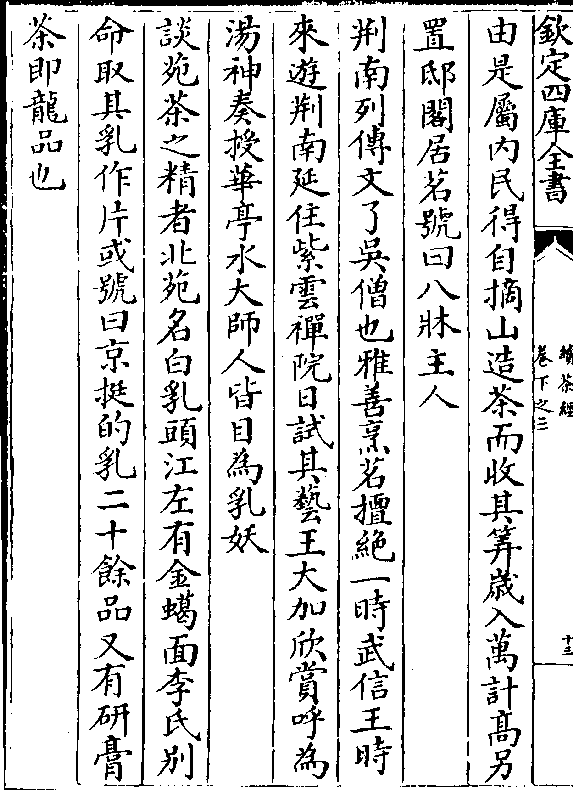 欽定四庫全書
續茶經
卷下之三
十三
由是屬内民得自摘山造茶而收其筭歳入萬計髙另
置邸閣居茗號曰八牀主人
荆南列傳文了吳僧也雅善烹茗擅絶一時武信王時
來遊荆南延住紫雲禪院日試其藝王大加欣賞呼為
湯神奏授華亭水大師人皆目為乳妖
談苑茶之精者北苑名白乳頭江左有金蠟面李氏别
命取其乳作片或號曰京挺的乳二十餘品又有研膏
茶即龍品也